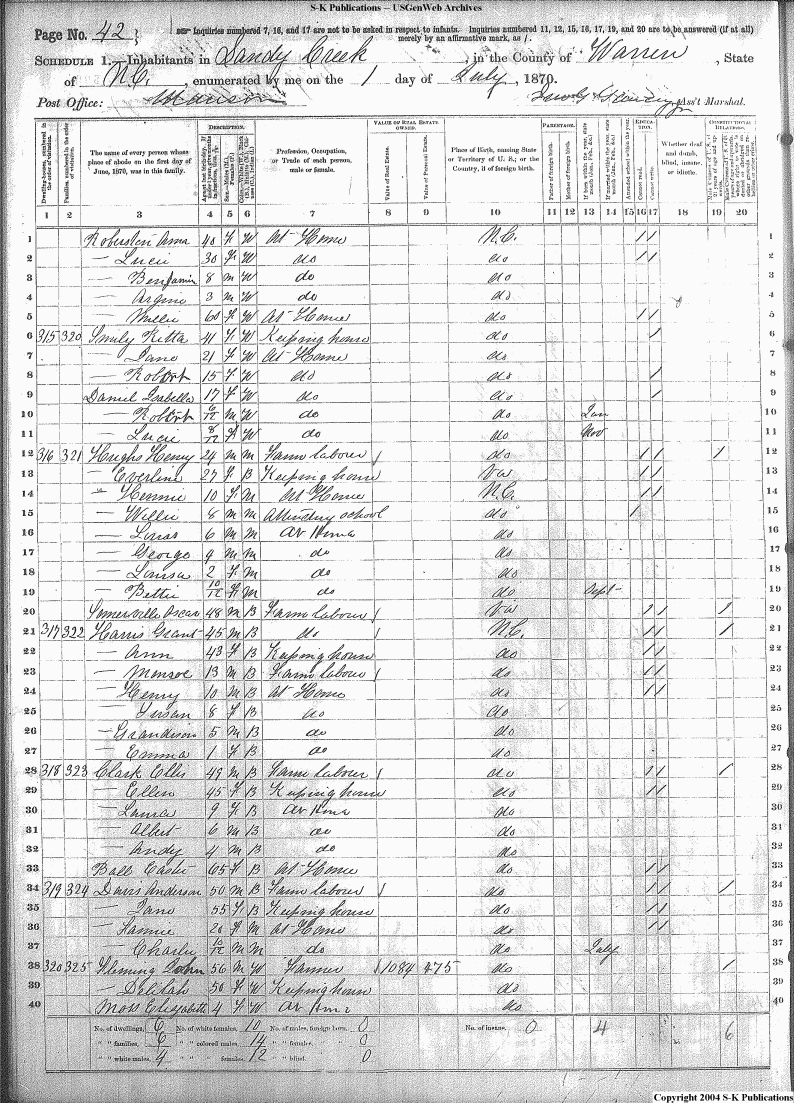 S-K Publications – USGenWeb Archives
Page No. 42
Inquiries numbered 7, 16, and 17 are not to be asked in respect to infants. Inquiries numbered 11, 12, 15, 16, 17, 19, and 20 are to be answered (if at all) merely by an affirmative mark, as /.
Schedule 1.—Inhabitants in Sandy Creek, in the County of Warren, State
of N.C. enumerated by me on the 1 day of July, 1870.
Post Office: Ass't Marshal.
Description. Value of Real Estate Owned. Parentage. Education. Constitutional Relations.
Dwelling-houses, numbered in the order of visitation. Families, numbered in the order of visitation. The name of every person whose place of abode on the first day of June, 1870, was in this family. Profession, Occupation, or Trade of each person, male or female. Value of Real Estate. Value of Personal Estate. Place of Birth, naming State or Territory of U. S.; or the Country, if of foreign birth. Father of foreign birth. Mother of foreign birth. Attended school within the year. Cannot read. Cannot write. Whether deaf and dumb, blind, insane, or idiotic.
1 2 3 4 5 6 7 8 9 10 11 12 13 14 15 16 17 18 19 20
1 Anna 40 F W At Home N.C. / / 1
2 — Lucie 30 F W do do / / 2
3 — Benjamin 8 M W do do 3
4 — 3 M W do do 4
5 — Willie 60 F W At Home do / / 5
6 315 320 Kitta 41 F W Keeping house do / 6
7 — Jane 21 F W At Home do 7
8 — Robert 15 F W do do / 8
9 Daniel Isabella 17 F W do do / 9
10 — Robert 6/12 M W do do Jan 10
11 — Lucie 8/12 F W do do Nov 11
12 316 321 Hughs Henry 24 M M Farm labourer / do / / / 12
13 — Everline 27 F B Keeping house Va / / 13
14 " Hennie 10 F M At Home N.C. / / 14
15 — Willie 8 M M Attending school do / 15
16 — 6 M M At Home do 16
17 — George 4 M M do do 17
18 — Louisa 2 F M do do 18
19 — Bettie 10/12 F M do do Sept 19
20 Somerville Oscar 48 M B Farm labour / Va / / / 20
21 317 322 Harris Grant 45 M B do / N.C. / / / 21
22 — Ann 43 F B Keeping house do / / 22
23 — Monroe 13 M B Farm labour / do / / 23
24 — Henry 10 M B At Home do / / 24
25 — Susan 8 F B do do 25
26 — Grandison 5 M B do do 26
27 — Emma 1 F B do do 27
28 318 323 Clark Ellis 49 M B Farm labour / do / / / 28
29 — Ellen 45 F B Keeping house do / / 29
30 — Laura 9 F B At Home do 30
31 — Albert 6 M B do do 31
32 — Andy 4 M B do do 32
33 Ball 65 F B At Home do / / 33
34 319 324 Davis Anderson 50 M B Farm labour / do / / / 34
35 — Jane 55 F B Keeping house do / / 35
36 — Fannie 20 F M At Home do / / 36
37 — Charlie 10/12 M M do do July 37
38 320 325 Fleming John 56 M W Farmer / 1084 475 do / 38
39 — Delilah 50 F W Keeping house do 39
40 Moss Elizabeth 4 F W At Home do 40
No. of dwellings, 6 No. of white females, 10 No. of males, foreign born, 0 No. of insane, 0 4 6
" " families, 6 " " colored males, 14 " " females, " 0
" " white males, 4 " " females, 12 " " blind, 0
Copyright 2004 S-K Publications